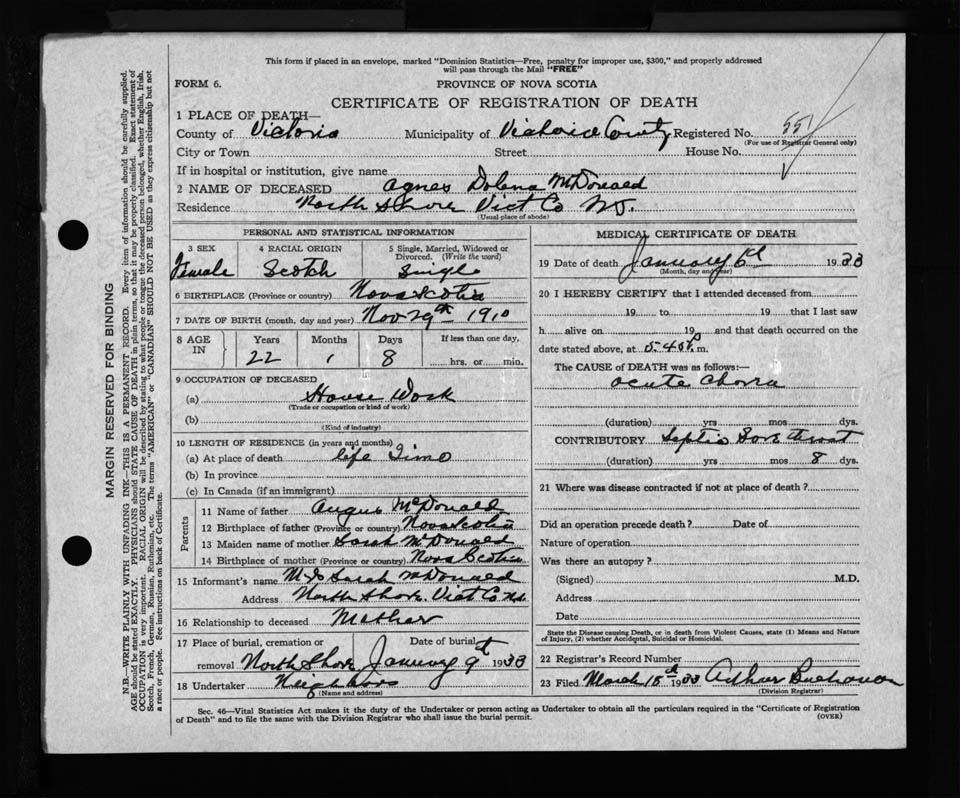 This form if placed in an envelope, marked "Dominion Statistics—Free, penalty for improper use, $300," and properly addressed
will pass through the Mail "FREE"
FORM 6.
PROVINCE OF NOVA SCOTIA
CERTIFICATE OF REGISTRATION OF DEATH
1 PLACE OF DEATH—
County of Victoria Municipality of Victoria County Registered No. 551
(For use of Registrar General only)
City or Town Street House No.
If in hospital or institution, give name
2 NAME OF DECEASED Agnes Dolena McDonald
Residence North Shore Vict Co N.S.
(Usual place of abode)
PERSONAL AND STATISTICAL INFORMATION
3 SEX 4 RACIAL ORIGIN 5 Single, Married, Widowed or Divorced. (Write the word)
Female Scotch Single
6 BIRTHPLACE (Province or country) Nova Scotia
7 DATE OF BIRTH (month, day and year) Nov 29th 1910
8 AGE IN Years Months Days If less than one day,
22 1 8 hrs. or min.
9 OCCUPATION OF DECEASED
(a) House Work
(Trade or occupation or kind of work)
(b)
(Kind of industry)
10 LENGTH OF RESIDENCE (in years and months)
(a) At place of death life Time
(b) In province
(c) In Canada (if an immigrant)
Parents
11 Name of father Angus McDonald
12 Birthplace of father (Province or country) Nova Scotia
13 Maiden name of mother Sarah McDonald
14 Birthplace of mother (Province or country) Nova Scotia
15 Informant's name Sarah McDonald
Address North Shore Vict Co N.S.
16 Relationship to deceased Mother
17 Place of burial, cremation or removal North Shore Date of burial January 9th 1933
18 Undertaker Neighbors
(Name and address)
MEDICAL CERTIFICATE OF DEATH
19 Date of death January 6th 1933
(Month, day and year)
20 I HEREBY CERTIFY that I attended deceased from
19 to 19 that I last saw
h alive on 19 and that death occurred on the
date stated above, at 5.40 P m.
The CAUSE of DEATH was as follows:—
acute Chorea
(duration) yrs mos dys.
CONTRIBUTORY Septic Sore throat
(duration) yrs mos 8 dys.
21 Where was disease contracted if not at place of death?
Did an operation precede death? Date of
Nature of operation
Was there an autopsy?
(Signed) M.D.
Address
Date
State the Disease causing Death, or in death from Violent Causes, state (1) Means and Nature
of Injury, (2) whether Accidental, Suicidal or Homicidal.
22 Registrar's Record Number
23 Filed March 15th 1933 Arthur Buchanan
(Division Registrar)
Sec. 46—Vital Statistics Act makes it the duty of the Undertaker or person acting as Undertaker to obtain all the particulars required in the "Certificate of Registration
of Death" and to file the same with the Division Registrar who shall issue the burial permit.
(OVER)
MARGIN RESERVED FOR BINDING
N.B.—WRITE PLAINLY WITH UNFADING INK—THIS IS A PERMANENT RECORD. Every item of information should be carefully supplied.
AGE should be stated EXACTLY. PHYSICIANS should STATE CAUSE OF DEATH in plain terms, so that it may be properly classified. Exact statement of
OCCUPATION is very important. RACIAL ORIGIN will be described by stating to what people or tongue the deceased person belonged, whether English, Irish,
Scotch, French, German, Russian, Ruthenian, etc. The terms "AMERICAN" or "CANADIAN" SHOULD NOT BE USED as they express citizenship but not
a race or people. See instructions on back of Certificate.